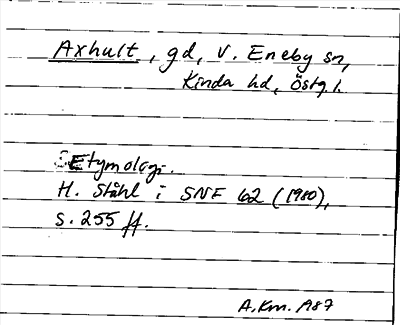 Axhult, gd, V. Eneby sn,
Kinda hd, Östg.l.
Etymologi.
H. Ståhl i SNF 62 (1980),
s. 255 ff.
A.Km. 1987